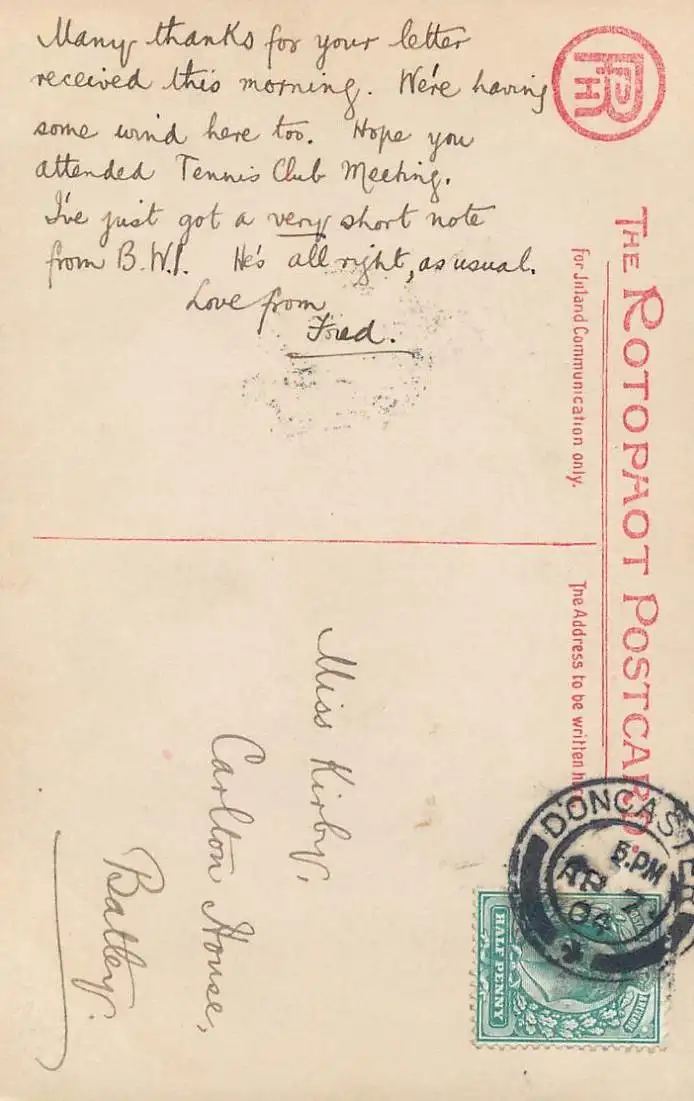 Many thanks for your letter
received this morning. We're having
some wind here too. Hope you
attended Tennis Club Meeting.
I've just got a very short note
from B.W.P. He's all right, as usual.
Love from
Fred.
THE ROTOPHOT POSTCARD.
For Inland Communication only.
The Address to be written
Miss Kirby,
Carlton House,
Batley.
DONCASTER
5.PM
AP 7
04
HALF PENNY